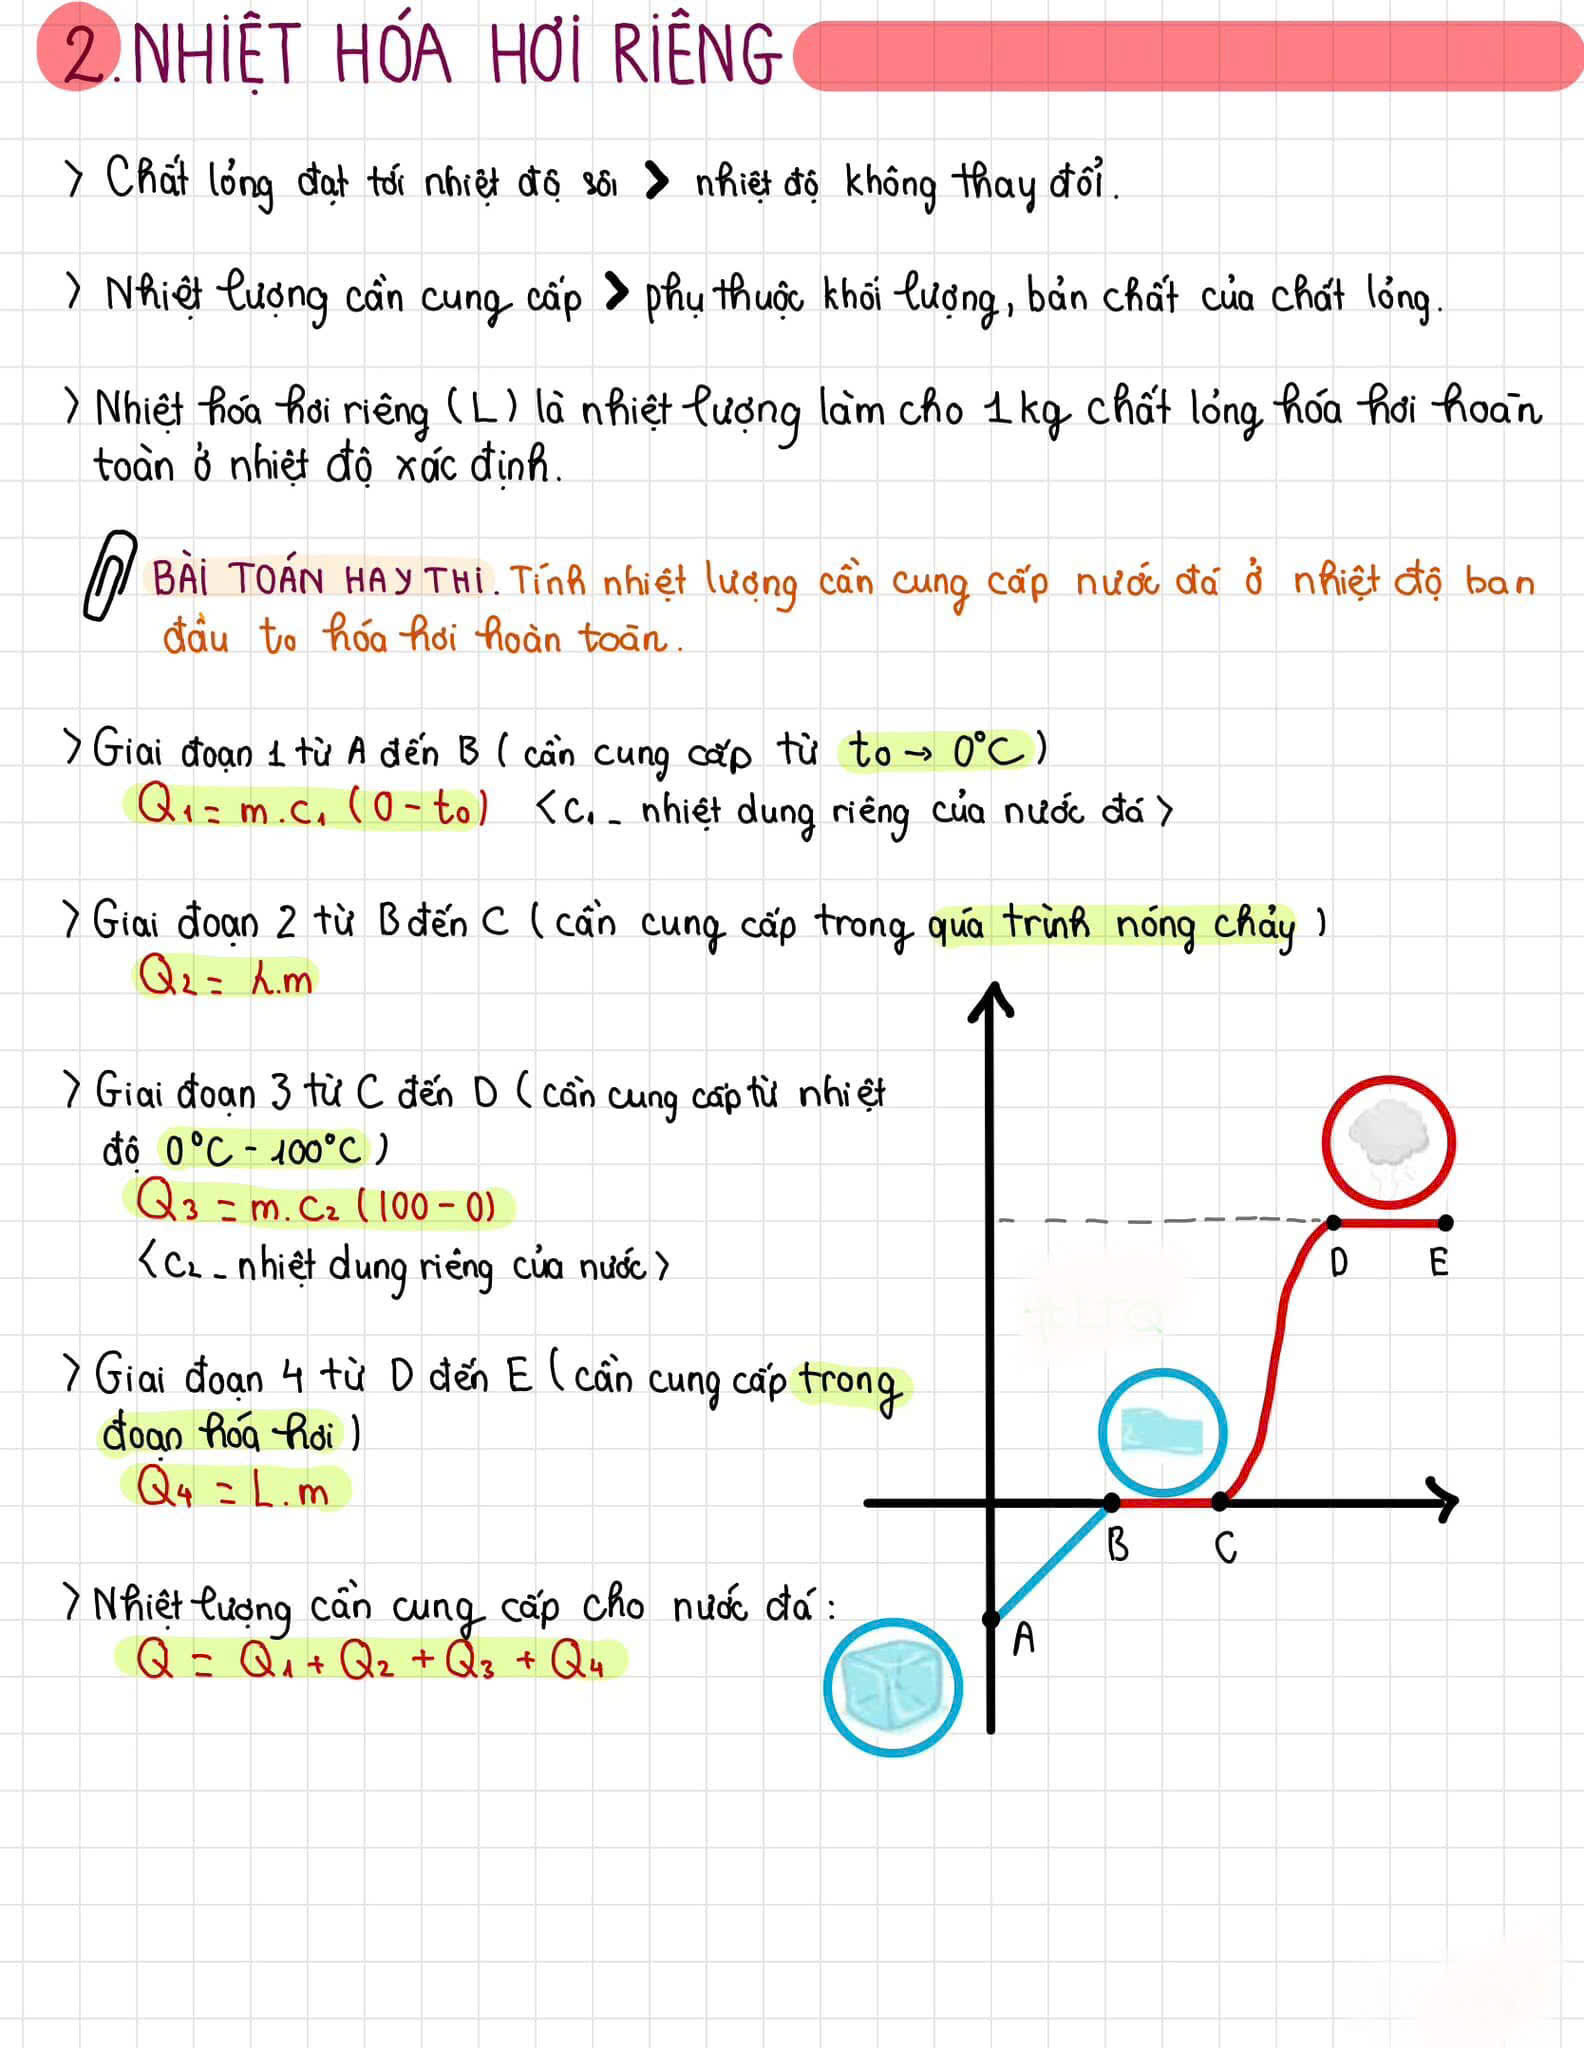 2. NHIỆT HÓA HƠI RIÊNG
> Chất lỏng đạt tới nhiệt độ sôi > nhiệt độ không thay đổi.
> Nhiệt lượng cần cung cấp > phụ thuộc khối lượng, bản chất của chất lỏng.
> Nhiệt hóa hơi riêng (L) là nhiệt lượng làm cho 1kg chất lỏng hóa hơi hoàn
toàn ở nhiệt độ xác định.
BÀI TOÁN HAY THI. Tính nhiệt lượng cần cung cấp nước đá ở nhiệt độ ban
đầu t₀ hóa hơi hoàn toàn.
> Giai đoạn 1 từ A đến B (cần cung cấp từ t₀ → 0°C)
Q₁ = m.c₁ (0 - t₀) <c₁ - nhiệt dung riêng của nước đá>
> Giai đoạn 2 từ B đến C (cần cung cấp trong quá trình nóng chảy)
Q₂ = λ.m
> Giai đoạn 3 từ C đến D (cần cung cấp từ nhiệt
độ 0°C - 100°C)
Q₃ = m.c₂ (100 - 0)
<c₂ - nhiệt dung riêng của nước>
D E
> Giai đoạn 4 từ D đến E (cần cung cấp trong
đoạn hóa hơi)
Q₄ = L.m
B C
> Nhiệt lượng cần cung cấp cho nước đá:
A
Q = Q₁ + Q₂ + Q₃ + Q₄